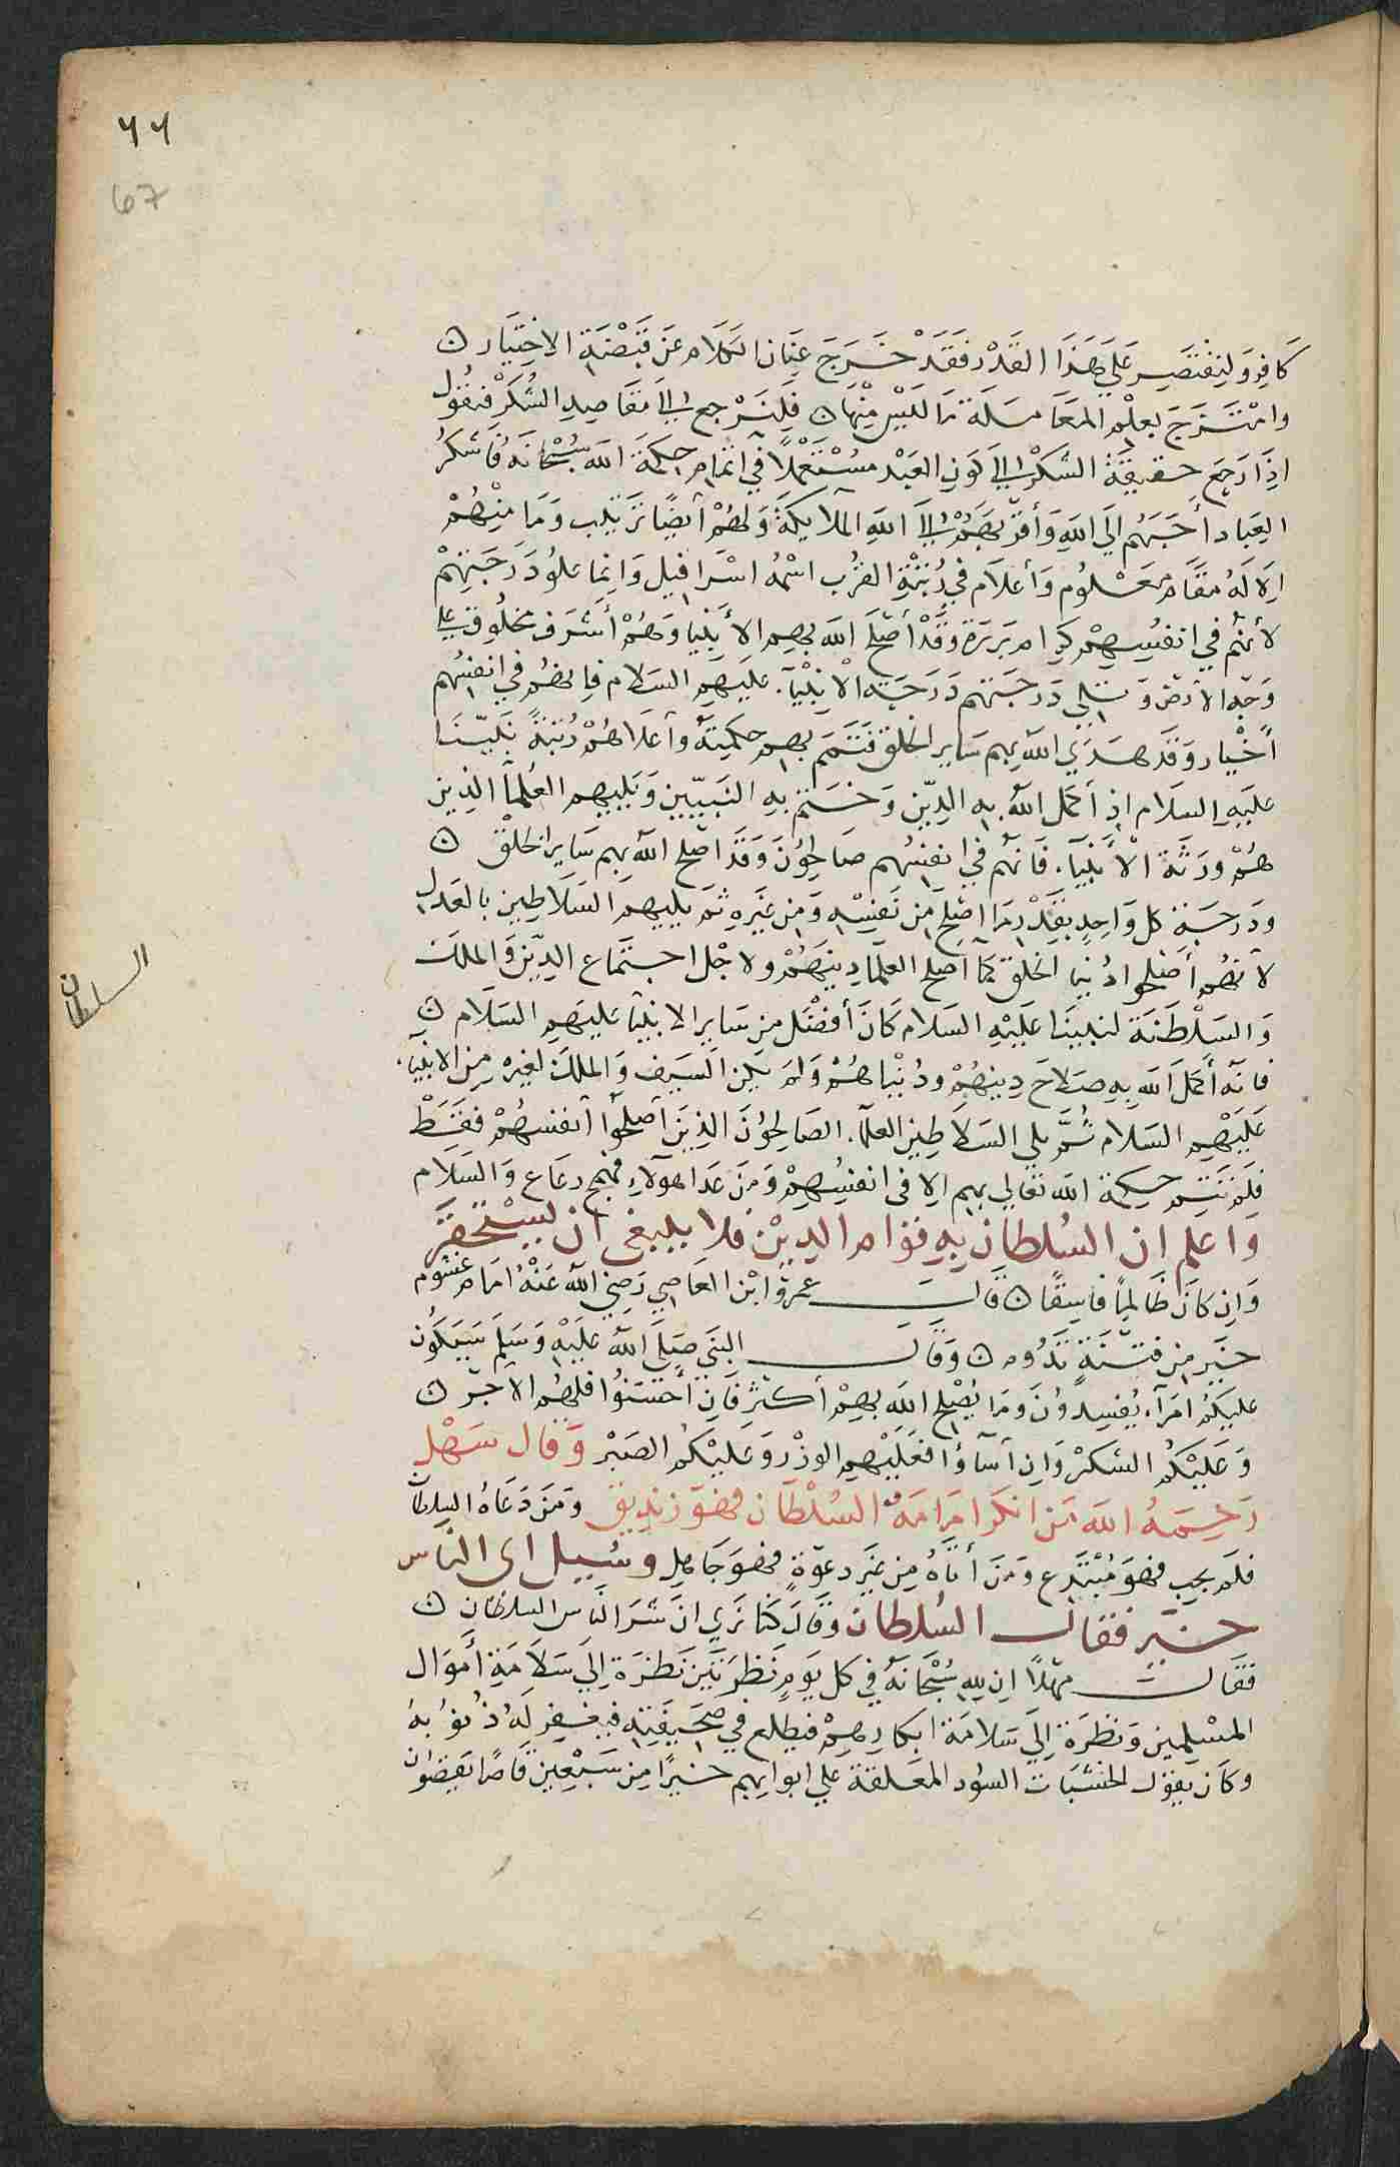 ٦٦
67
كَافِ وَلنِقتَصِر عَلَى هَذَا القَدْر فَقَدْ خَرَجَ عِنَان الكَلَام عَن قَبْضَةِ الاختِيَار ن
وامْتَزَجَ بعِلْمِ المعَامَلَة مَا لَيْسَ مِنْهَا ن فَلنَرْجع إلَى مَقَاصِدِ الشُكْر فنقُول
اذَا رَجِعَ حَقيقَةُ الشكْر إلى كَونِ العَبْد مُسْتَعْملًا في اتمَامِ حِكمَة الله سُبْحَانَهُ فَاشكَرُ
العِبَاد أحَبَهُم إلي اللهِ وَأقرَبهُمْ إلىَ اللهِ الملَايكَةُ وَلهُمْ أيضًا تَرتيب وَمَا مِنْهُمْ
إلا لَهُ مقَام مَعْلُوم وَأعلَاهم في رُتبَةِ القرُب اسْمُه اسْرَافيل وَانما علوُ دَرَجَتِهِمْ
لأنهُم في انفسِهِمْ كِرَام بَرَرَة وَقَدْ أصْلحَ الله بهِم الأنبِيَا وَهُمْ أشرَف مخلُوق علي
وَجه الأرض وَيَلي دَرجَتهم دَرَجَة الأنبِيَآء عَلَيهِم السَلام فانهُم في انفسُهم
أخْيار وَقَد هَدَي الله بِهم سَاير الخلق وَتَمَم بهِم حِكمتَهُ وأعلَاهُمْ رُتبَةً نَبيّنَا
عليَهِ السلَام اذ أكمَل اللهُ بِهِ الدِيّن وَخَتَم بِهِ النَبيّيِن وَيَليهِم العُلمآ الذين
هُمْ وَرَثَة الأنبيَآء فَانهُم في انفسُهم صَالحوُنَ وَقَد اصلح الله بِهم سَاير الخلْق ن
ودَرجَة كل وَاحِدٍ بقَدْرِ مَا اصْلح مِن نَفسِهِ وَمِن غيَرِهِ ثم يَليهَم السَلَاطِين بالعَدل
لأنهُم أصْلحوا دُنيا الخلق كما أصلح العلمَا دِينهُمْ ولاجْل اجتَماع الدِيّن وَالملك
وَالسَلْطَنَة لنبيّنَا عَليْهِ السَلام كَانَ أفضَل من سَايرِ الانبيَآ عليَهِم السَلَام ن
فانهُ أكمَلَ الله بِهِ صَلاحَ دِينهُمْ ودُنيْاهُمْ وَلَم يَكن السَيف وَالملك لغيرهِ مِن الانبيَآء
عَليَهِم السَلام ثُمَّ يلي السَلَاطِين العلمَآء الصَالحوُنَ الذِينَ أصْلحُوا أنفسهُمْ فقَطْ
فلَم تَتِم حِكمَة الله تعَالي بِهم إلا في انفسِهِمْ وَمَن عَدا هَولَاءِ فَهمج رعَاع وَالسَلَام
وَاعلم ان السُلطان بِهِ قوَام الدِيْن فلا ينبغى ان يُسْتحقَر
وَان كانَ ظَالِمًا فاسِقًا ن قَالَ عمرو ابْن العَاصِي رَضِيَ اللهُ عَنْهُ امَام غشوم
خيَر مِن فتنَةٍ تَدُوم ن وَقَالَ النبَي صَلَى اللهُ عليْهِ وَسَلَم سَيَكوُن
عليَكُم امَرآء يُفسِدوُنَ ومَا يُصْلح الله بِهمْ أكثَر فَإن أحْسَنُوا فلهُم الأجْر ن
وَعَليْكُم الشكرْ وَان أسَآؤا فعَليْهِم الوزْر وَعَليْكُم الصَبْر وَقال سَهْل
رَحِمَهُ الله مَن انكَر امَامَة السُلْطَان فَهوَ زنديق وَمَن دَعَاهُ السلطان
فلَم يجِب فهوَ مُبْتَدع وَمَن أتَاهُ مِن غيَر دعوَةٍ فَهوَ جَاهِل وسُيل اى الناس
خيَر فقال السُلطان وَقَالَ كنا نَري انَ شَرَ الناس السلطان ن
فقَال مَهلًا ان للهِ سُبْحَانَهُ في كل يَومٍ نَظرَتَين نَظرَة إلَى سَلَامَة أموَال
المسْلمِين وَنظرَة إلَى سَلامَة ابكارهِمْ فيَطلع في صَحيفَتِهِ فيَغفِر لَهُ ذنُوُبهُ
وكان يَقول الخشَبَات السُود المعَلقة علي ابوابِهم خيرًا مِن سَبْعِين قَاصًا يَقصُون
السلطان